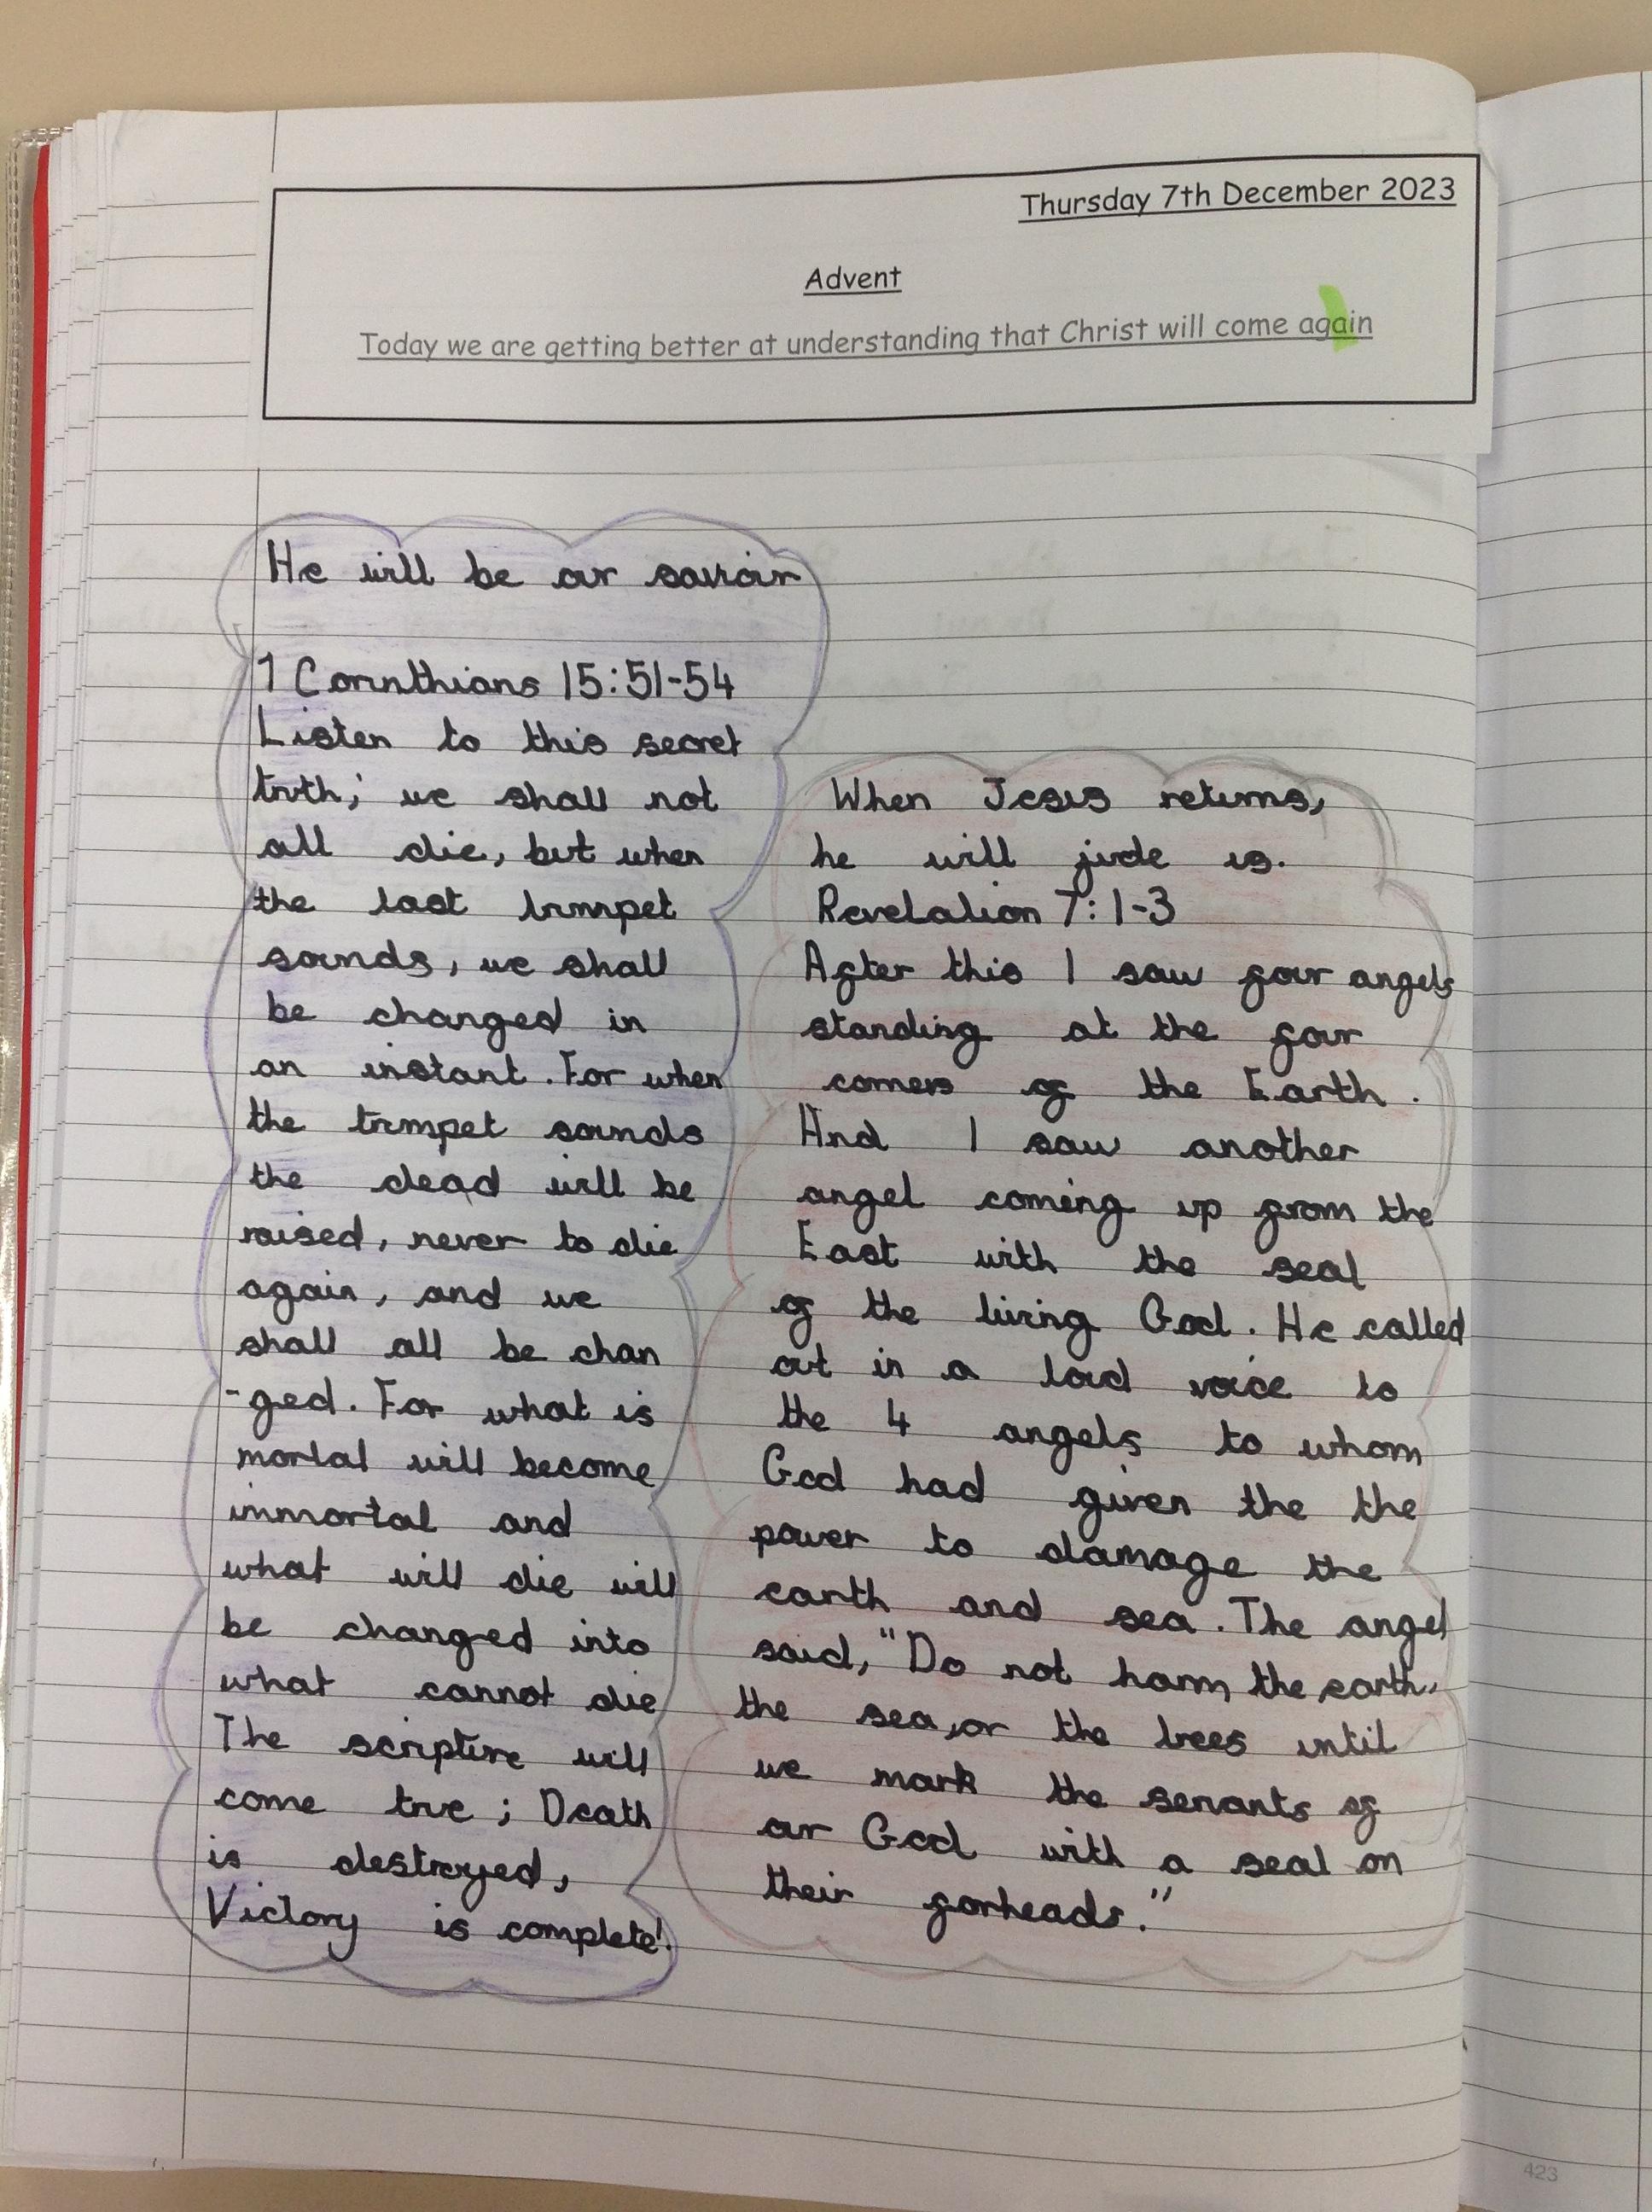 Thursday 7th December 2023
Advent
Today we are getting better at understanding that Christ will come again
He will be our saviour
1 Corinthians 15:51-54
Listen to this secret
truth; we shall not
all die, but when
the last trumpet
sounds, we shall
be changed in
an instant. For when
the trumpet sounds
the dead will be
raised, never to die
again, and we
shall all be chan
-ged. For what is
mortal will become
immortal and
what will die will
be changed into
what cannot die
The scripture will
come true; Death
is destroyed,
Victory is complete!
When Jesus returns,
he will jude us.
Revelation 7:1-3
After this I saw four angels
standing at the four
corners of the Earth.
And I saw another
angel coming up from the
East with the seal
of the living God. He called
out in a loud voice to
the 4 angels to whom
God had given the the
power to damage the
earth and sea. The angel
said, "Do not harm the earth,
the sea, or the trees until
we mark the servants of
our God with a seal on
their forheads."
423